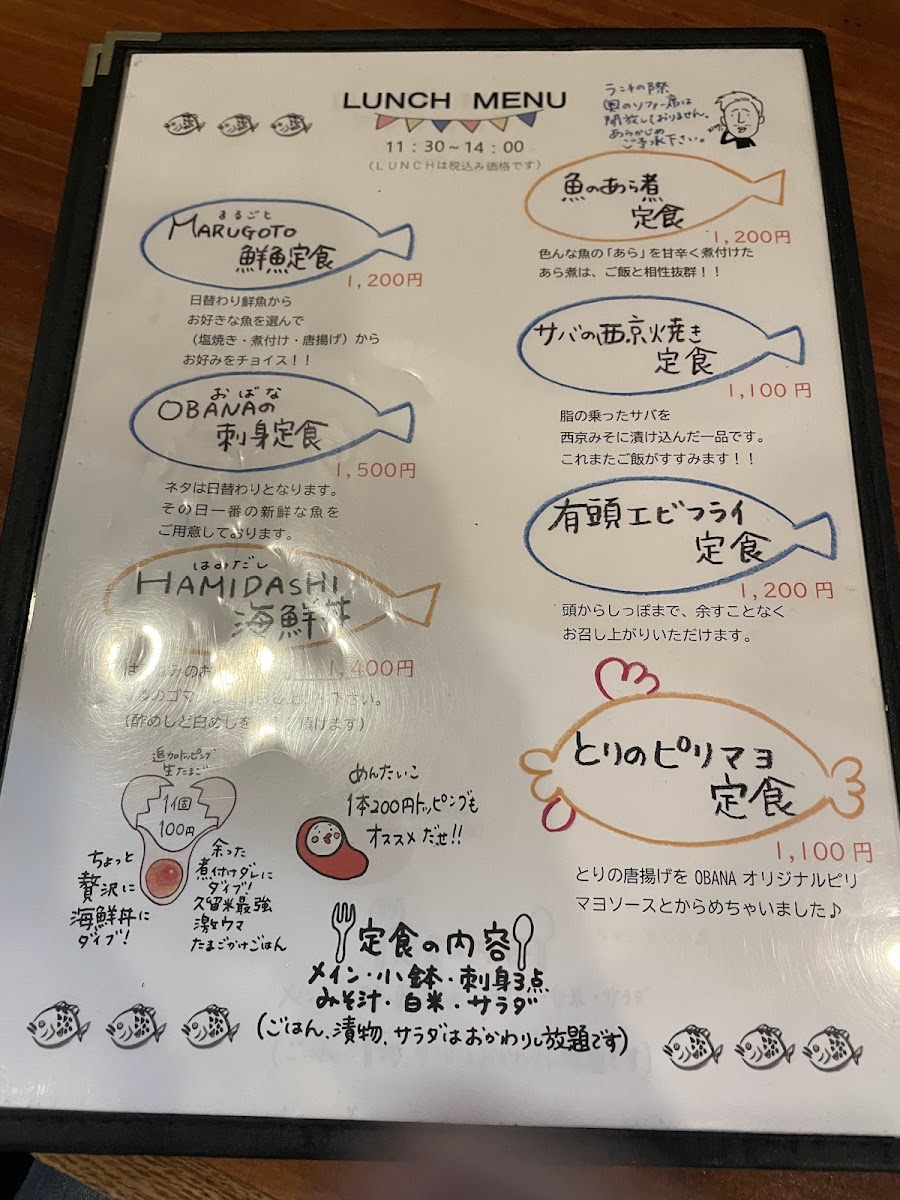 LUNCH MENU
11：30～14：00
（LUNCHは税込み価格です）
ランチの際
奥のソファー席は
開放しておりません。
あらかじめ
ご了承下さい。
まるごと
MARUGOTO
鮮魚定食
1,200円
日替わり鮮魚から
お好きな魚を選んで
（塩焼き・煮付け・唐揚げ）から
お好みをチョイス！！
おばな
OBANAの
刺身定食
1,500円
ネタは日替わりとなります。
その日一番の新鮮な魚を
ご用意しております。
はみだし
HAMIDASHI
海鮮丼
1,400円
は みのお
のゴマ 下さい。
（酢めしと白めしを 頂けます）
追加トッピング
生たまご
1個
100円
ちょっと
贅沢に
海鮮丼に
ダイブ！
余った
煮付けダレに
ダイブ！
久留米最強
激ウマ
たまごかけごはん
めんたいこ
1本200円トッピングも
オススメだぜ!!
魚のあら煮
定食
1,200円
色んな魚の「あら」を甘辛く煮付けた
あら煮は、ご飯と相性抜群！！
サバの西京焼き
定食
1,100円
脂の乗ったサバを
西京みそに漬け込んだ一品です。
これまたご飯がすすみます！！
有頭エビフライ
定食
1,200円
頭からしっぽまで、余すことなく
お召し上がりいただけます。
とりのピリマヨ
定食
1,100円
とりの唐揚げを OBANA オリジナルピリ
マヨソースとからめちゃいました♪
定食の内容
メイン・小鉢・刺身3点
みそ汁・白米・サラダ
(ごはん、漬物、サラダはおかわりし放題です)